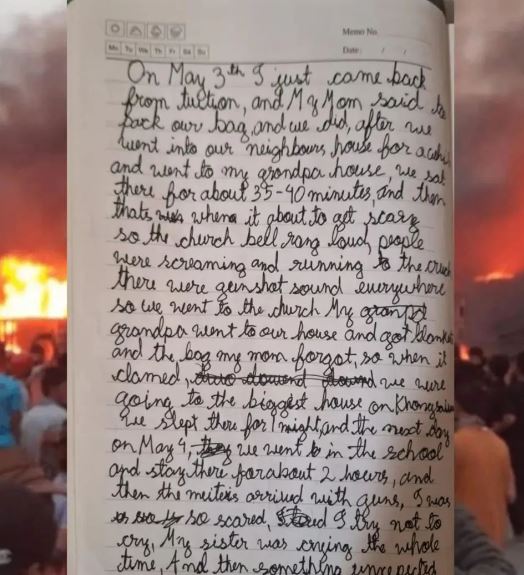 Memo No.
Mo Tu We Th Fr Sa Su
Date: / /
On May 3th I just came back
from tuition, and My Mom said to
pack our bag, and we did, after we
went into our neighbours house for a
and went to my grandpa house, we sat
there for about 35-40 minutes, and then
thats when it about to get scary
so the church bell rang loud, people
were screaming and running to the
there were gunshot sound everywhere
so we went to the church My
grandpa went to our house and got
and the bag my mom forgot, so when it
clamed, we were
going to the biggest house on
We slept there for 1 night, and the next day
on May 4, we went to in the school
and stay there for about 2 hours, and
then the meiteis arrived with guns, I was
so scared, I try not to
cry, My sister was crying the whole
time, And then something unexpected